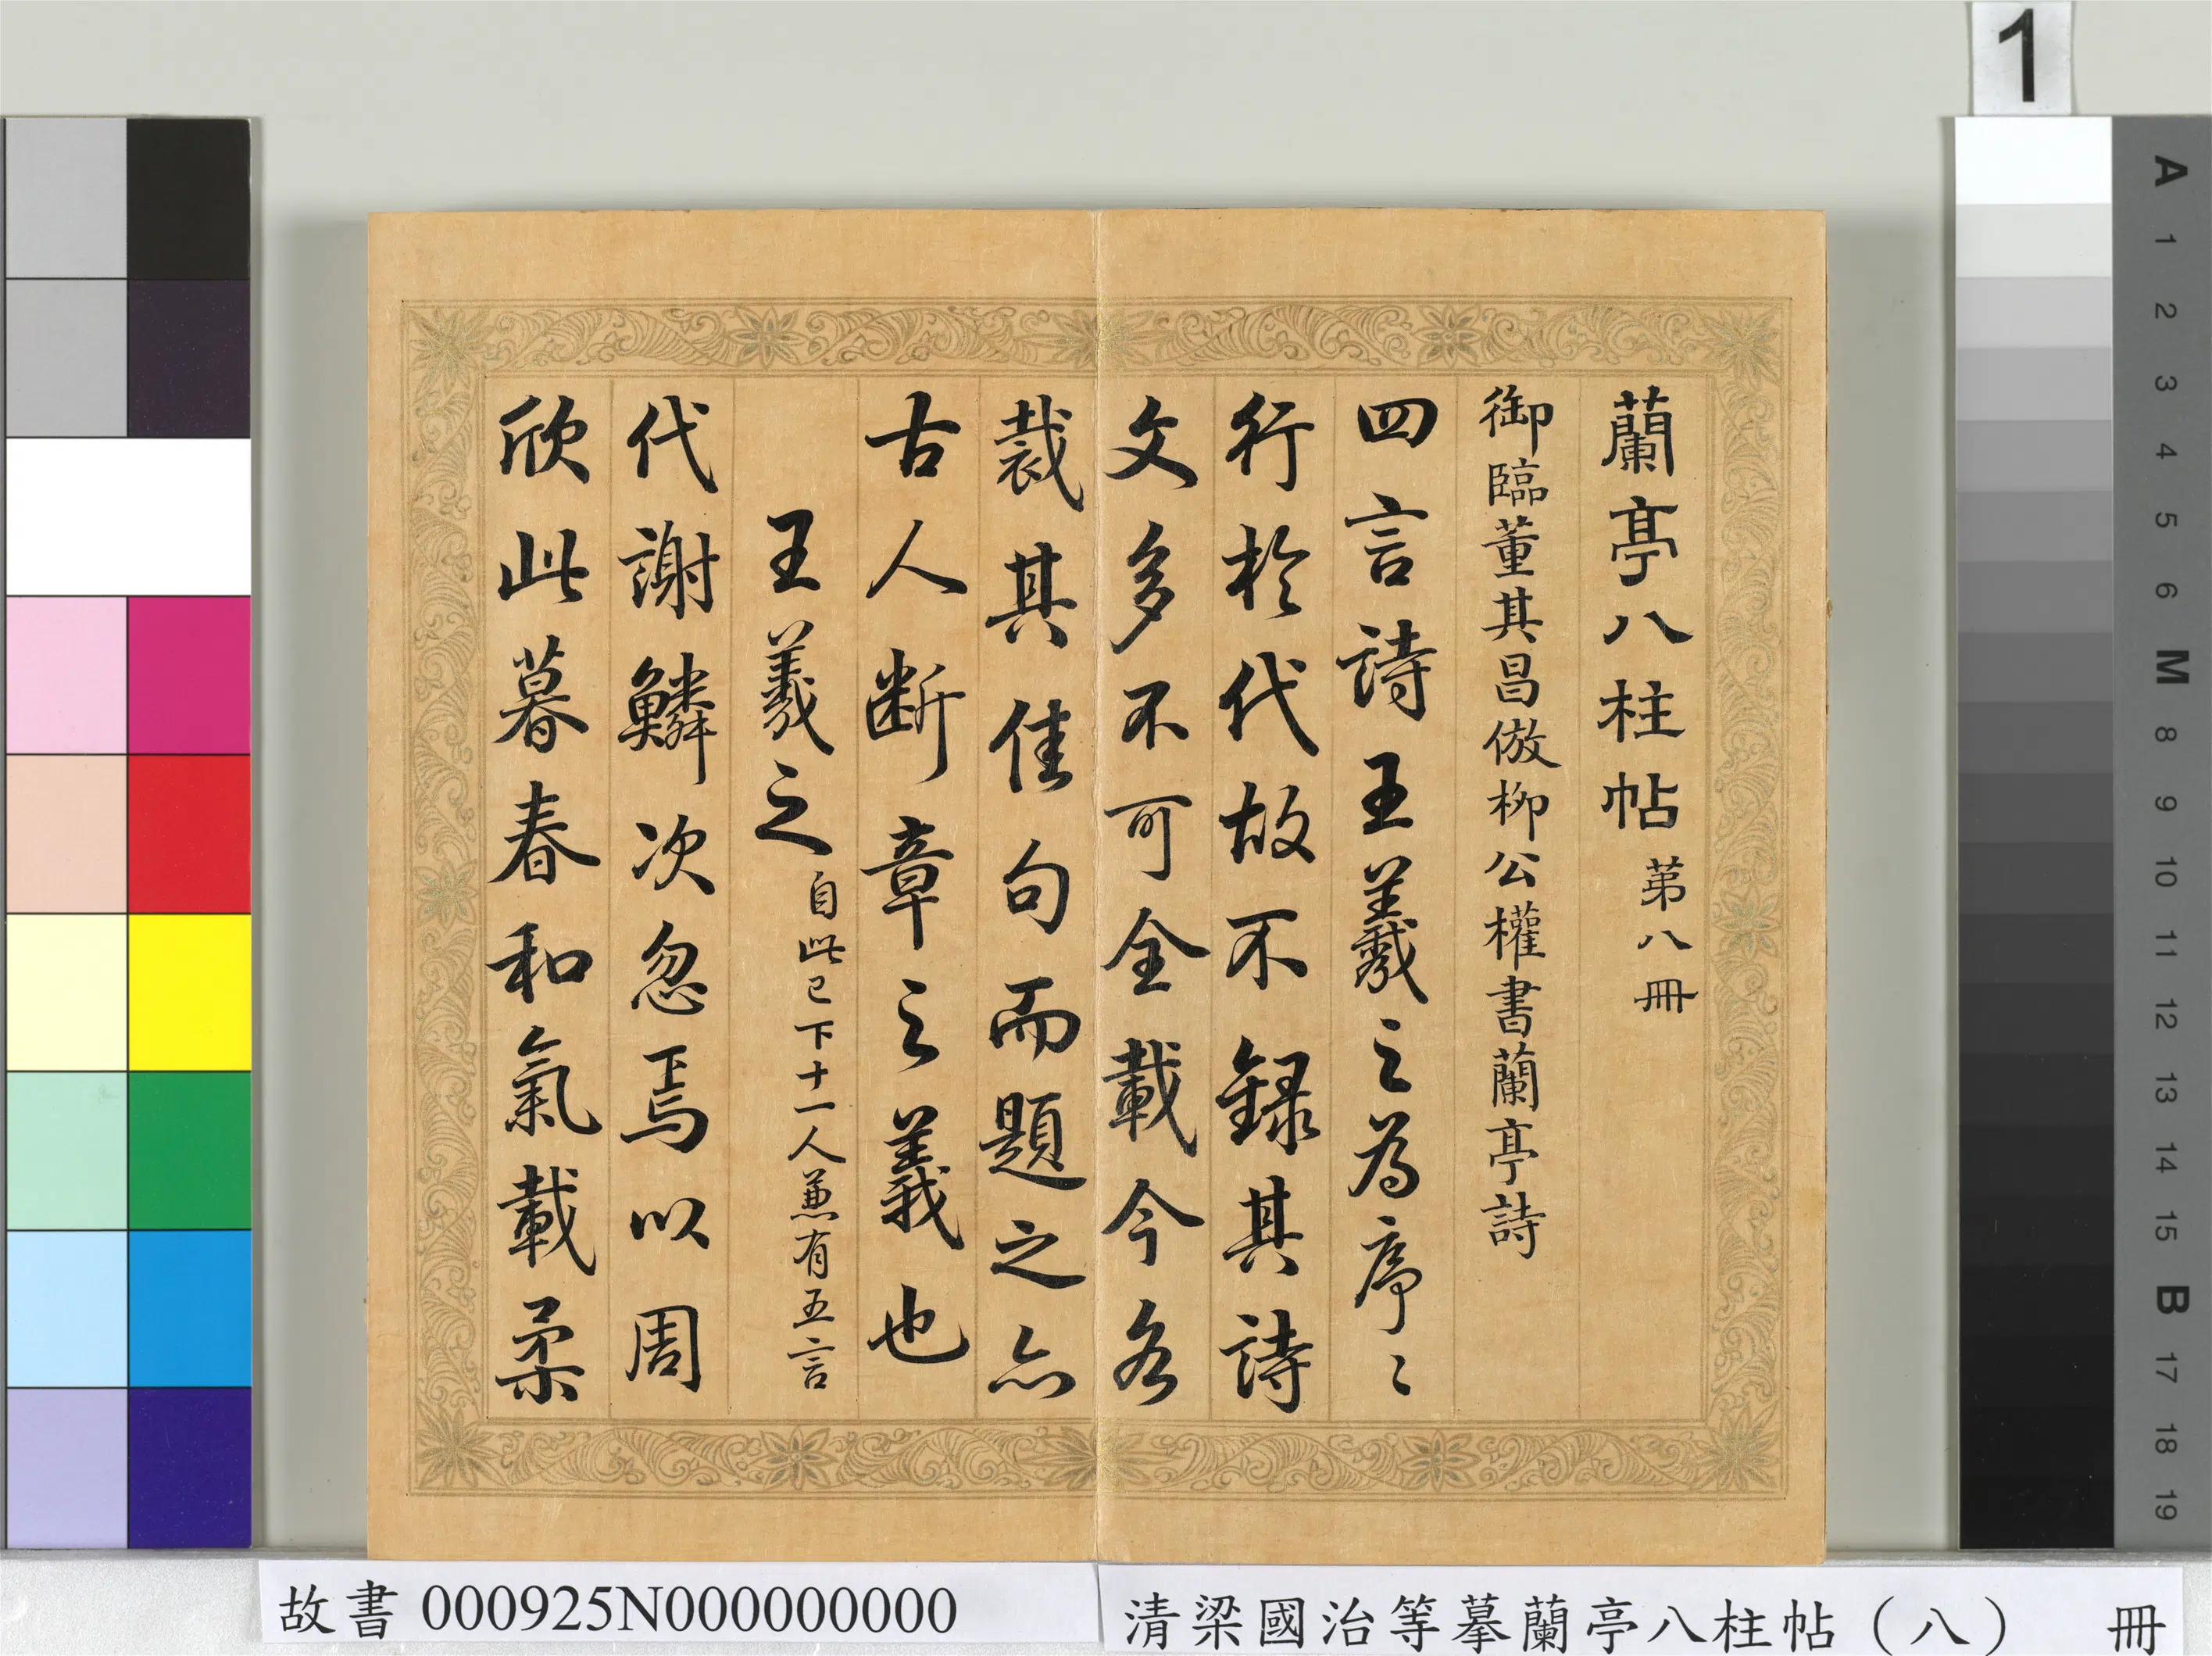 蘭亭八柱帖 第八冊
御臨董其昌倣柳公權書蘭亭詩
四言詩王羲之為序序
行於代故不録其詩
文多不可全載今各
裁其佳句而題之亦
古人断章之義也
王羲之 自此已下十一人兼有五言
代謝鱗次忽焉以周
欣此暮春和氣載柔
1
A
1
2
3
4
5
6
M
8
9
10
11
12
13
14
15
B
17
18
19
故書 000925N000000000
清梁國治等摹蘭亭八柱帖（八） 冊